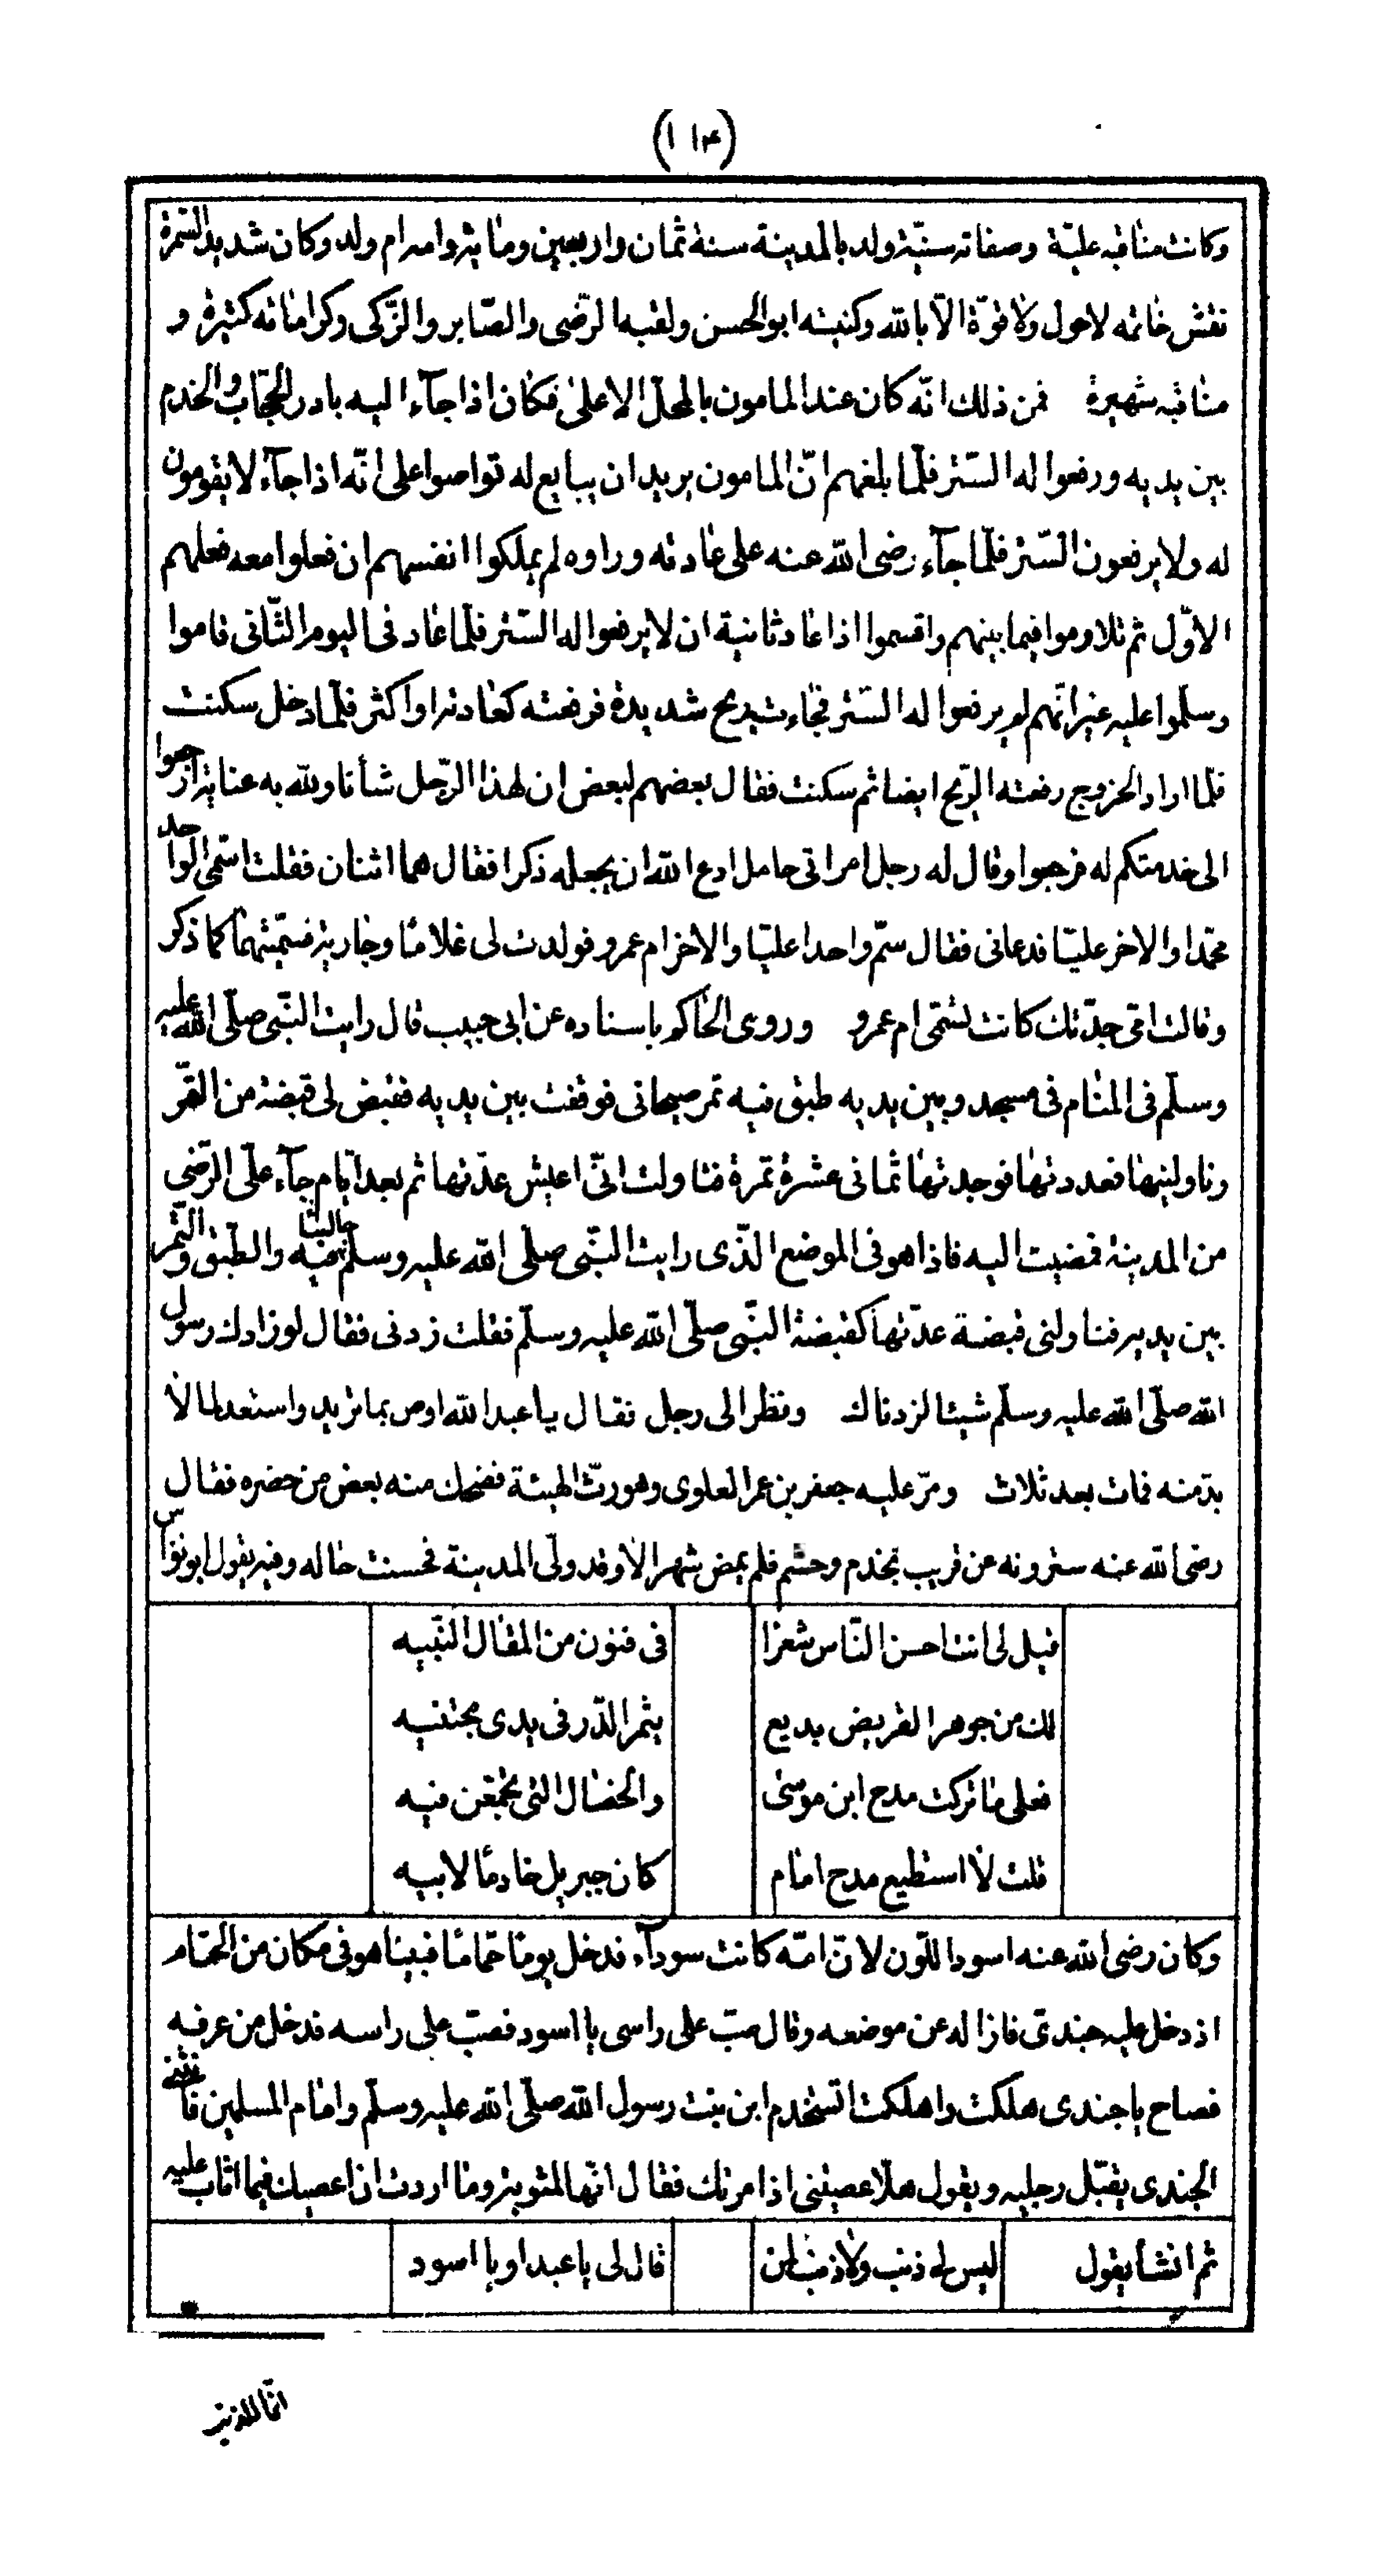 (١١٤)
وكانت مناقبه عليّة وصفاته سنيّة ولد بالمدينة سنة ثمان واربعين ومايئة وامه ام ولد وكان شديد السّمرة
نقش خاتمه لاحول ولا قوّة الّا بالله وكنيته ابوالحسن ولقبه الرّضى والصّابر والزّكى وكراماته كثيرة و
مناقبه شهيرة فمن ذلك انّه كان عند المامون بالمحلّ الاعلى فكان اذا جآء اليه بادر الحجّاب والخدم
بين يديه ورفعوا له السّتر فلمّا بلغهم انّ المامون يريد ان يبايع له تواصوا على انّه اذا جآء لا يقومون
له ولا يرفعون السّتر فلمّا جآء رضى الله عنه على عادته وراوه لم يملكوا انفسهم ان فعلوا معه فعلهم
الاوّل ثم تلاوموا فيما بينهم واقسموا اذا عاد ثانية ان لا يرفعوا له السّتر فلمّا عاد فى اليوم الثّانى قاموا
وسلّموا عليه غير انّهم لم يرفعوا له السّتر فجاءت ريح شديدة فرفعته كعادته او اكثر فلمّا دخل سكنت
فلمّا اراد الخروج رفعته الرّيح ايضا ثم سكنت فقال بعضهم لبعض ان لهذا الرّجل شأنا ولله به عناية ارجعوا
الى خدمتكم له فرجعوا وقال له رجل امراتى حامل ادع الله ان يجعله ذكرا فقال هما اثنان فقلت اسمّى الواحد
محمّدا والاخر عليّا فدعانى فقال سمّ واحدا عليّا والاخر ام عمرو فولدت لى غلاما وجارية فسمّيتهما كما ذكر
وقالت امّى جدّتك كانت تسمّى ام عمرو وروى الحاكم باسناده عن ابى حبيب قال رايت النّبى صلّى الله عليه
وسلّم فى المنام فى مسجد وبين يديه طبق فيه تمر صيحانى فوقفت بين يديه فقبض لى قبضة من التّمر
وناولنيها فعددتها فوجدتها ثمانى عشرة تمرة فتاولت انّى اعيش عدّتها ثم بعد ايّام جآء علىّ الرّضى
من المدينة فمضيت اليه فاذا هو فى الموضع الّذى رايت النّبى صلّى الله عليه وسلّم جالسا فيه والطّبق والتّمر
بين يديه فناولنى قبضة عدّتها كقبضة النّبى صلّى الله عليه وسلّم فقلت زدنى فقال لو زادك رسول
الله صلّى الله عليه وسلّم شيئا لزدناك ونظر الى رجل فقال يا عبد الله اوص بما تريد واستعد لما لا
بدّ منه فمات بعد ثلاث ومرّ عليه جعفر بن عمر العلوى وهو رثّ الهيئة فضحك منه بعض من حضره فقال
رضى الله عنه سترونه عن قريب بخدم وحشم فلم يمض شهر الا وقد ولّى المدينة فحسنت حاله وفيه يقول ابو نواس
قيل لى انت احسن النّاس شعرا في فنون من المقال النّبيه
لك من جوهر القريض بديع يثمر الدّر فى يدى مجتنيه
فعلى ما تركت مدح ابن موسى والخصال التى تجمّعن فيه
قلت لا استطيع مدح امام كان جبريل خادما لابيه
وكان رضى الله عنه اسود اللّون لانّ امّه كانت سودآء فدخل يوما حمّاما فبينا هو فى مكان من الحمّام
اذ دخل عليه جندىّ فازاله عن موضعه وقال صبّ على راسى يا اسود فصبّ على راسه فدخل من عرفه
فصاح يا جندى هلكت واهلكت اتستخدم ابن بنت رسول الله صلّى الله عليه وسلّم وامام المسلمين فانثنى
الجندى يقبّل رجليه ويقول هلّا عصيتنى اذ امرتك فقال انّها لمثوبة وما اردت ان اعصيك فيما اثاب عليه
ثم انشأ يقول ليس لى ذنب ولا ذنب لمن قال لى يا عبد او يا اسود
انّما الذنب